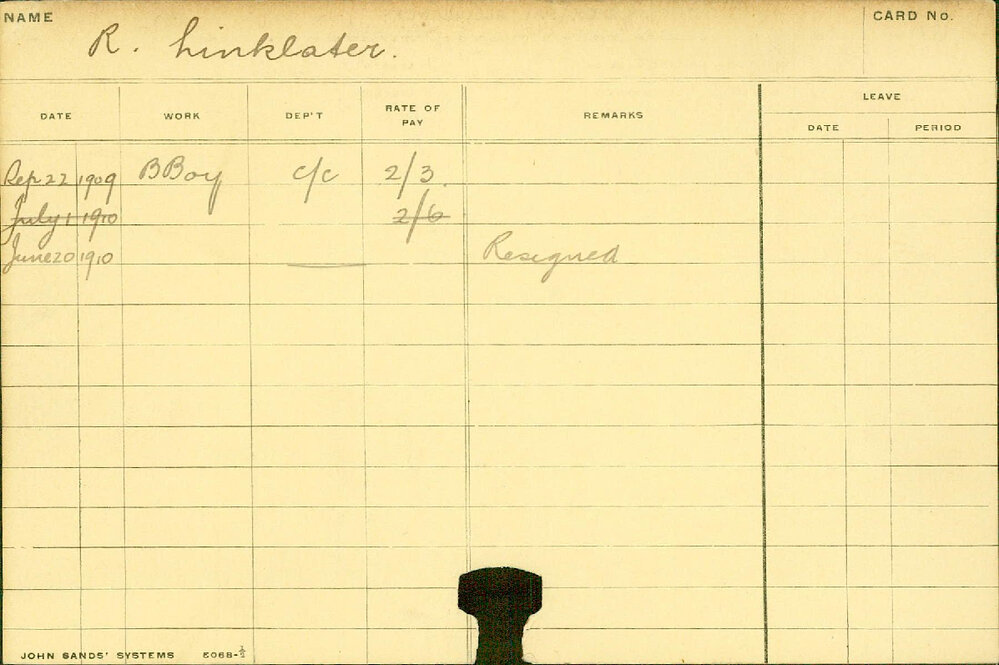 NAME
R. Linklater.
CARD No.
DATE WORK DEP'T RATE OF PAY REMARKS LEAVE
DATE PERIOD
Sep 22 1909 BBoy c/c 2/3
July 1 1910 2/6
June 20 1910 Resigned
JOHN SANDS' SYSTEMS 5068-½